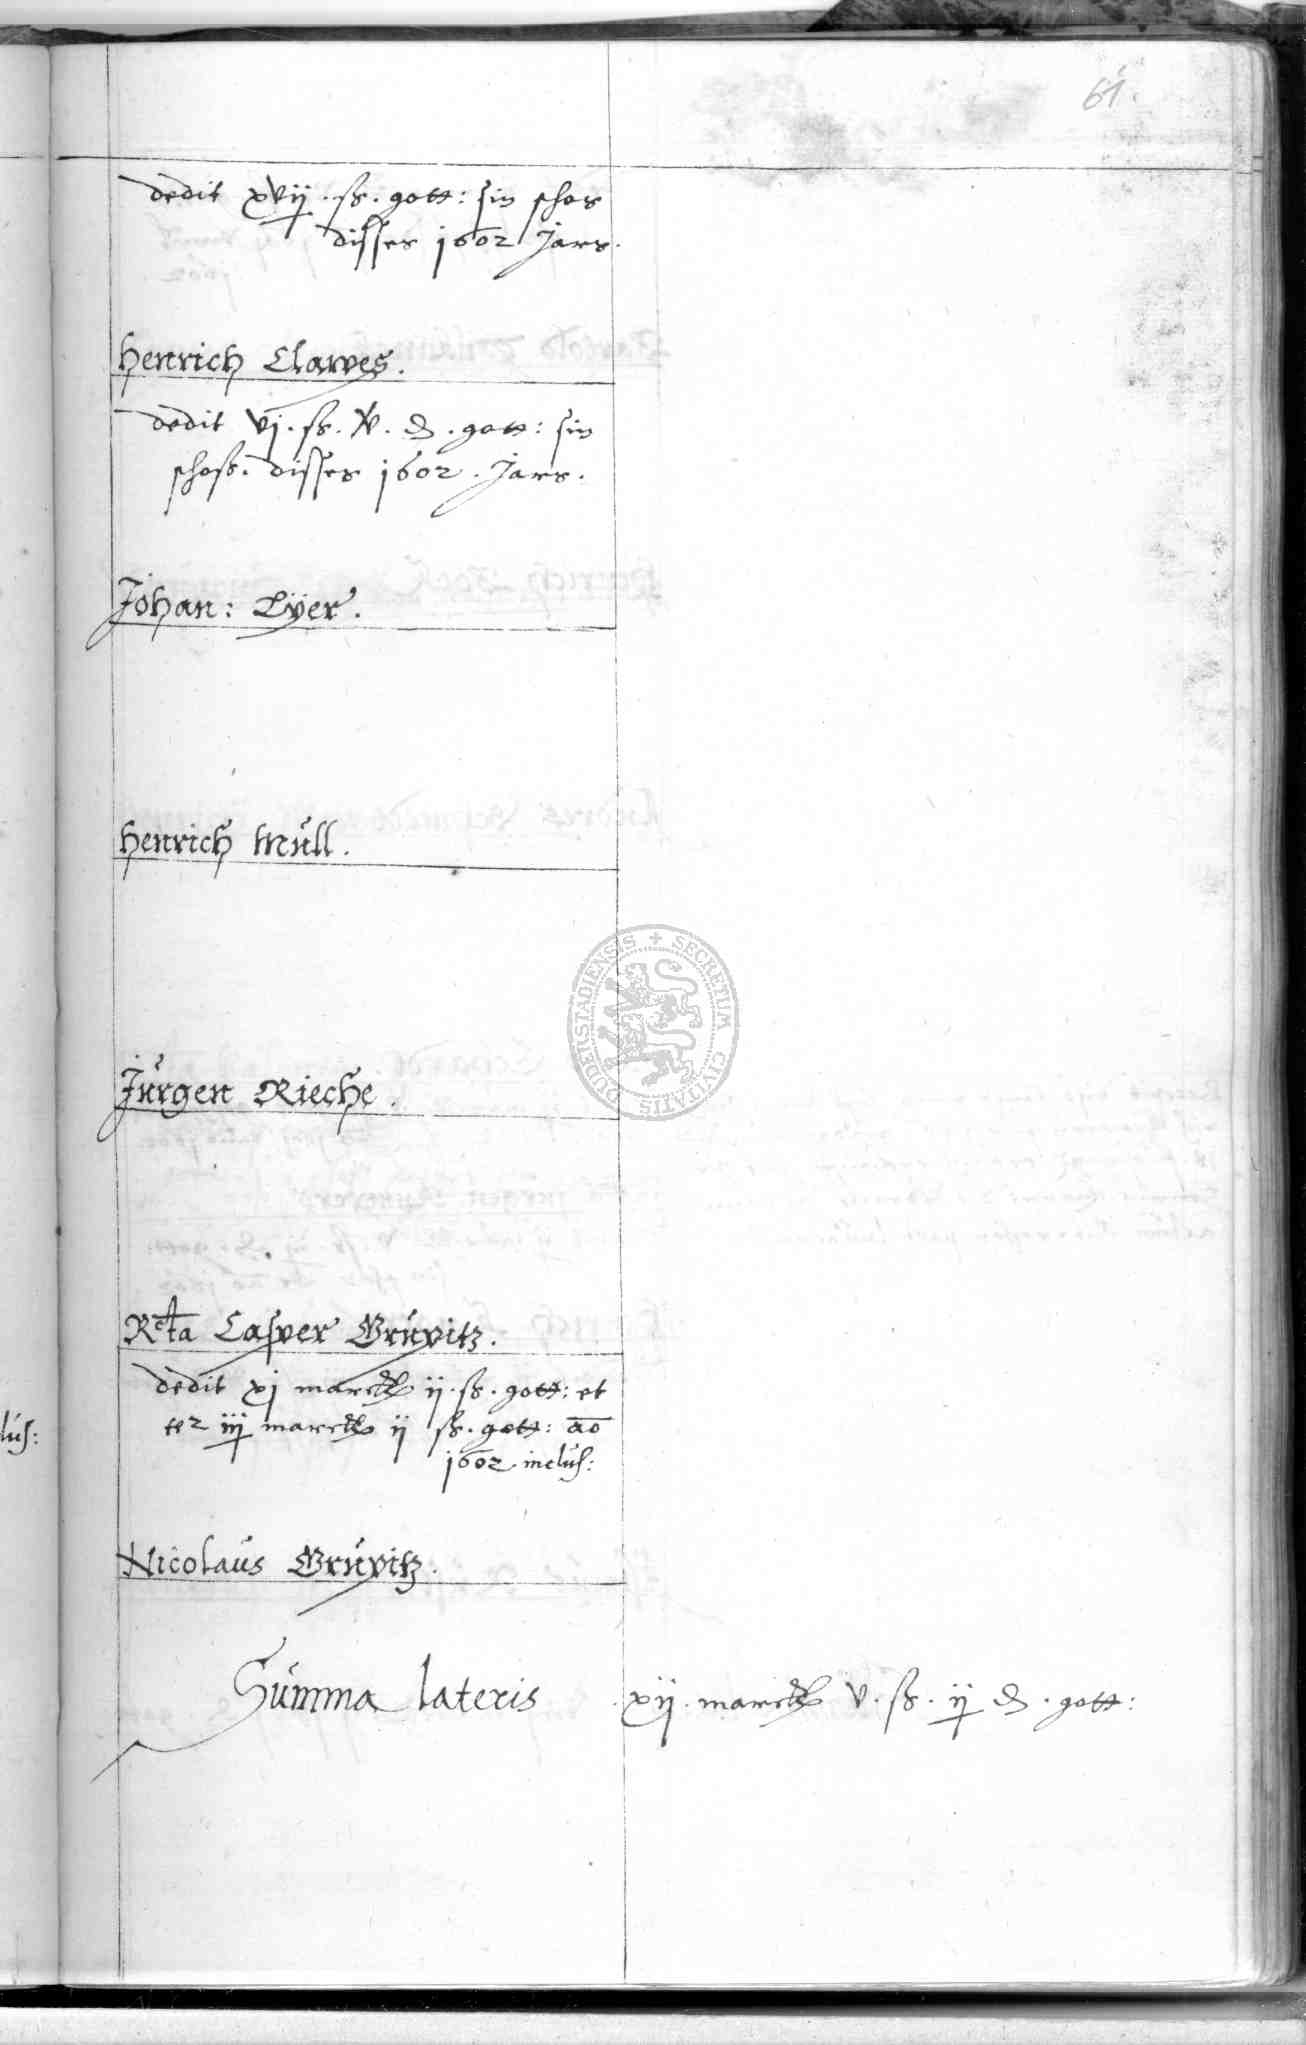 61.
dedit xvij. ß. gott: sin schos
disses 1602 Jars.
Henrich Clawes.
dedit vj. ß. v. d. gott: sin
schoß. disses 1602. Jars.
Johan: Lÿer.
Henrich Müll.
Jürgen Rieche.
Rcta Casper Grüvitz.
dedit xj marck ij. ß. gott: et
ter iij marck ij ß. gott: ao
1602 inclus:
lus:
Nicolaus Grüvitz.
Summa lateris xij. marck v. ß. ij d. gott:
SECRETUM CIVITATIS DUDERSTADIENSIS